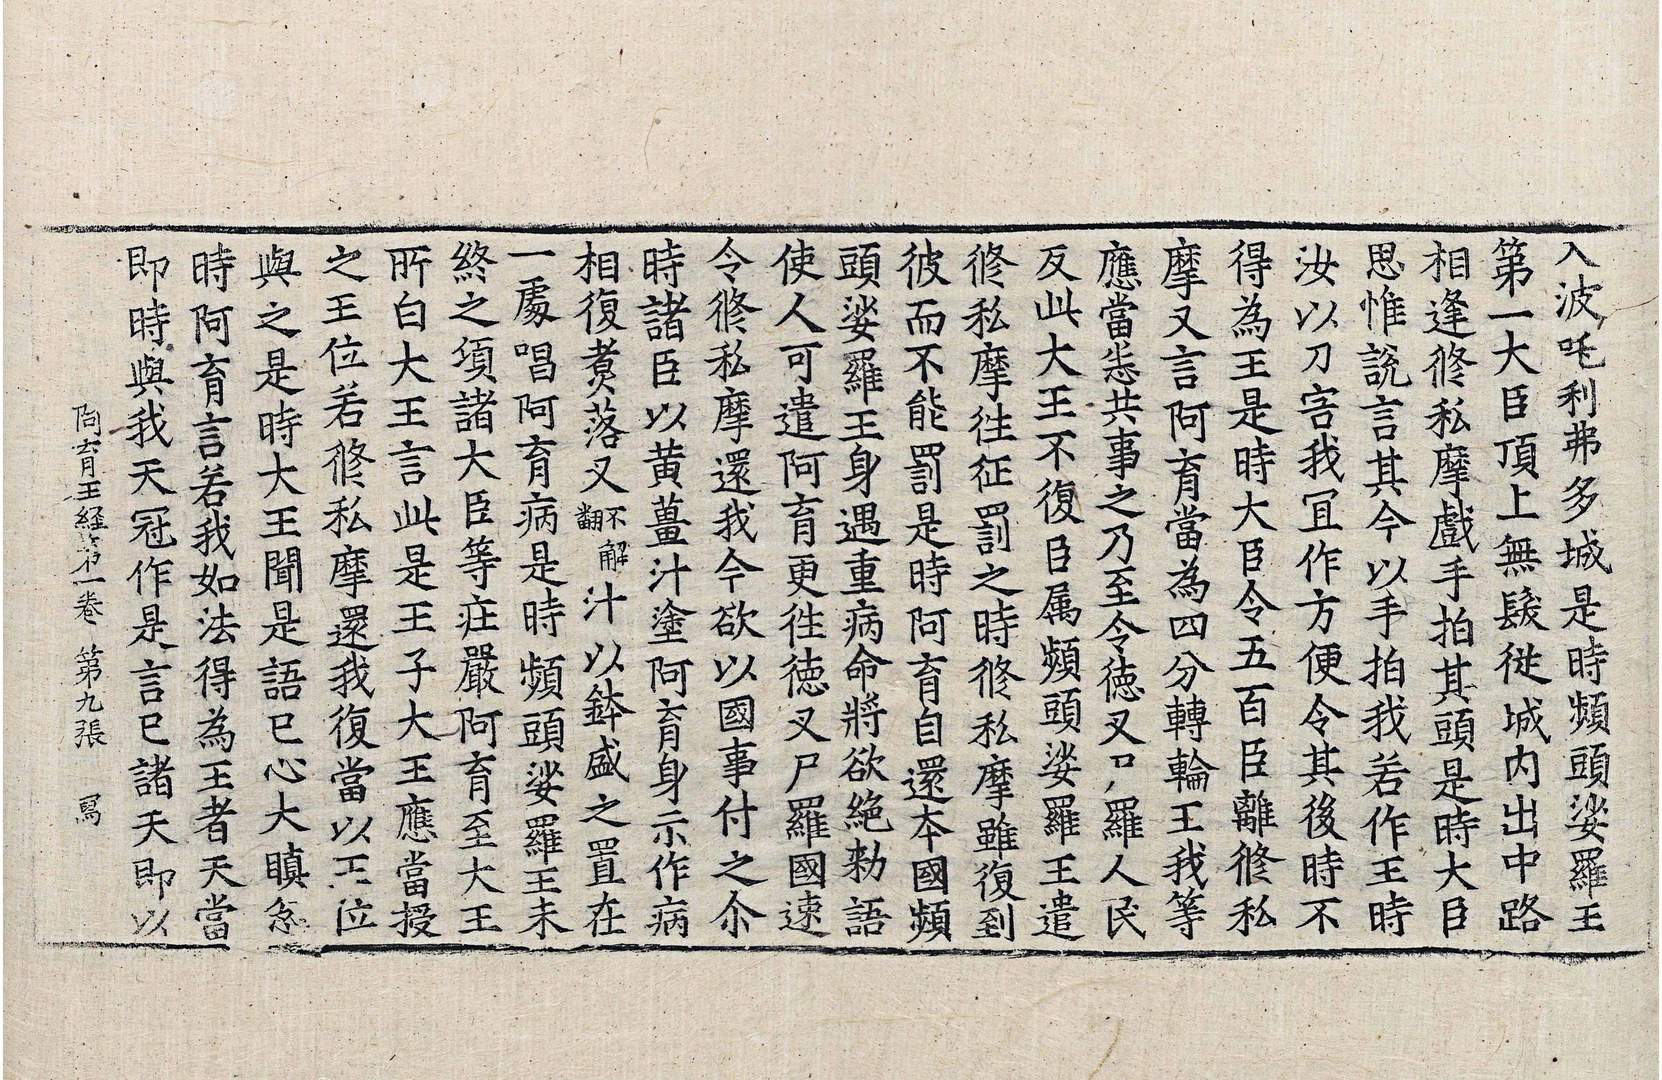 入波吒利弗多城是時頻頭娑羅王
第一大臣頂上無髮從城内出中路
相逢修私摩戲手拍其頭是時大臣
思惟說言其今以手拍我若作王時
汝以刀害我冝作方便令其後時不
得為王是時大臣令五百臣離修私
摩又言阿育當為四分轉輪王我等
應當悉共事之乃至令德叉尸羅人民
反此大王不復臣属頻頭娑羅王遣
修私摩往征罰之時修私摩雖復到
彼而不能罰是時阿育自還本國頻
頭娑羅王身遇重病命將欲絶勑語
使人可遣阿育更往德叉尸羅國速
令修私摩還我今欲以國事付之尒
時諸臣以黄薑汁塗阿育身示作病
相復煑落叉翻不解汁以鉢盛之置在
一處唱阿育病是時頻頭娑羅王未
終之湏諸大臣等庄嚴阿育至大王
所白大王言此是王子大王應當授
之王位若修私摩還我復當以王位
與之是時大王聞是語已心大瞋忿
時阿育言若我如法得為王者天當
即時與我天冠作是言已諸天即以
阿育王経第一卷 第九張 寫